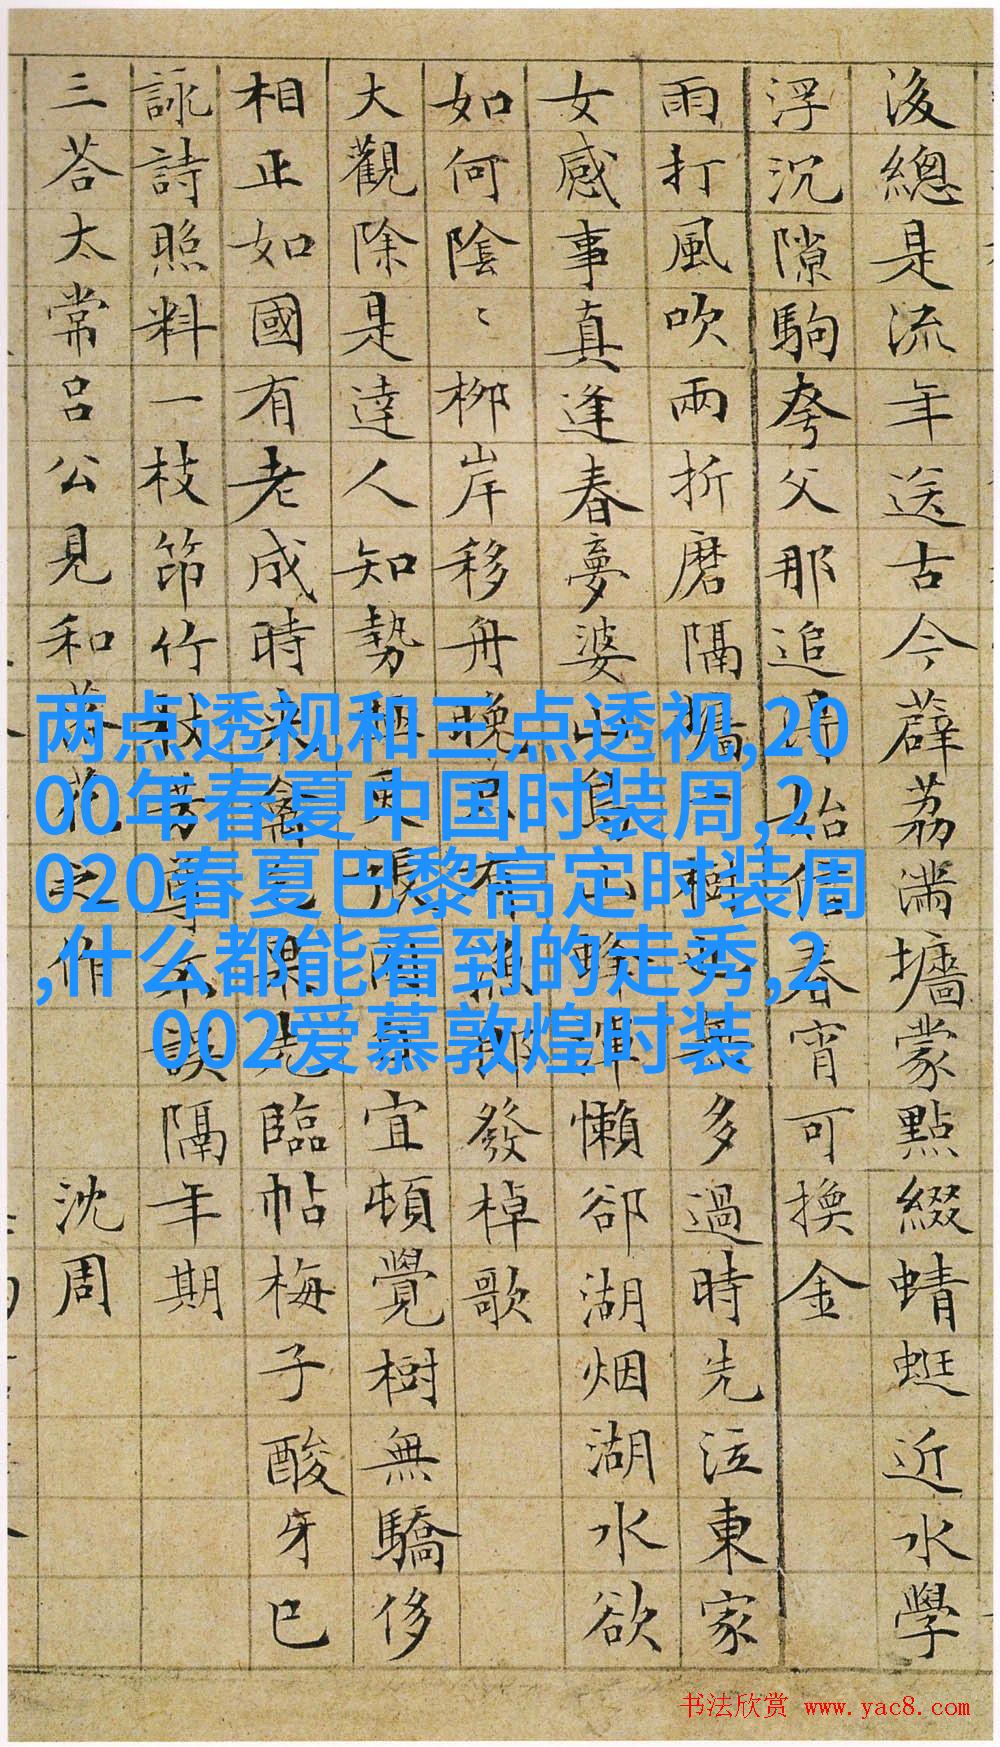 後總是流年送古今薜荔滿墻蒙點綴蜻蜓近水學
浮沉隙駒夸父那追始信春宵可換金
雨打風吹兩折磨隔墻樹多過時先泣東家
女感事真逢春夢婆山鳥山蜂渾懶卻湖烟湖水欲
如何陰〻柳岸移舟晚有漁郎發棹歌
大觀除是達人知勢更張宜頓覺樹無驕侈
相正如國有老成時來禽先臨帖梅子酸牙巴
詠詩照料一枝筇竹杖芳尊不誤隔年期
三荅太常呂公見和落花之作 沈周
两点透视和三点透视,20
00年春夏中国时装周,2
020春夏巴黎高定时装周
,什么都能看到的走秀,2
002爱慕敦煌时装
书法欣赏 www.yac8.com